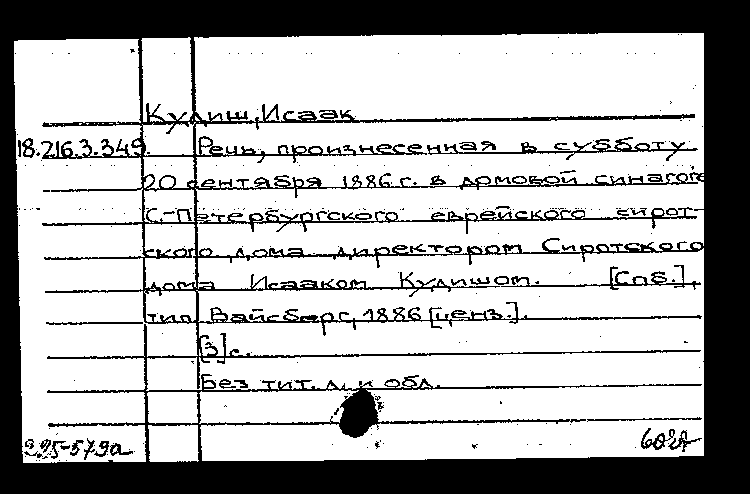 Кудиш, Исаак
18.216.3.349. Речь, произнесенная в субботу
20 сентября 1886 г. в домовой синагоге
С.-Петербургского еврейского сирот-
ского дома директором Сиротского
дома Исааком Кудишом. [Спб.],
тип. Вайсберг, 1886 [ценз.].
[3] с.
Без тит. л. и обл.
225-579а